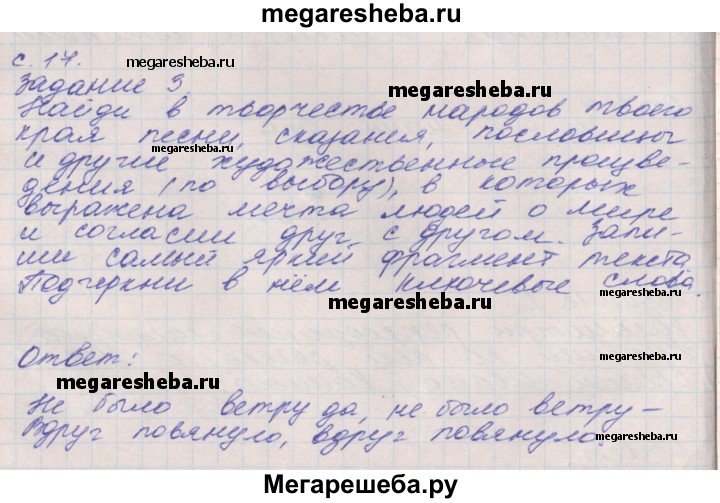 megaresheba.ru
с. 17.
megaresheba.ru
Задание 3.
megaresheba.ru
Найди в творчестве народов твоего
края песни, сказания, пословицы
megaresheba.ru
и другие художественные произве-
дения (по выбору), в которых
megaresheba.ru
выражена мечта людей о мире
и согласии друг с другом. Запи-
ши самый яркий фрагмент текста.
Подчеркни в нём ключевые слова.
megaresheba.ru
Ответ:
megaresheba.ru
megaresheba.ru
Не было ветру да, не было ветру –
Вдруг повянуло, вдруг повянуло.
megaresheba.ru
Мегарешеба.ру